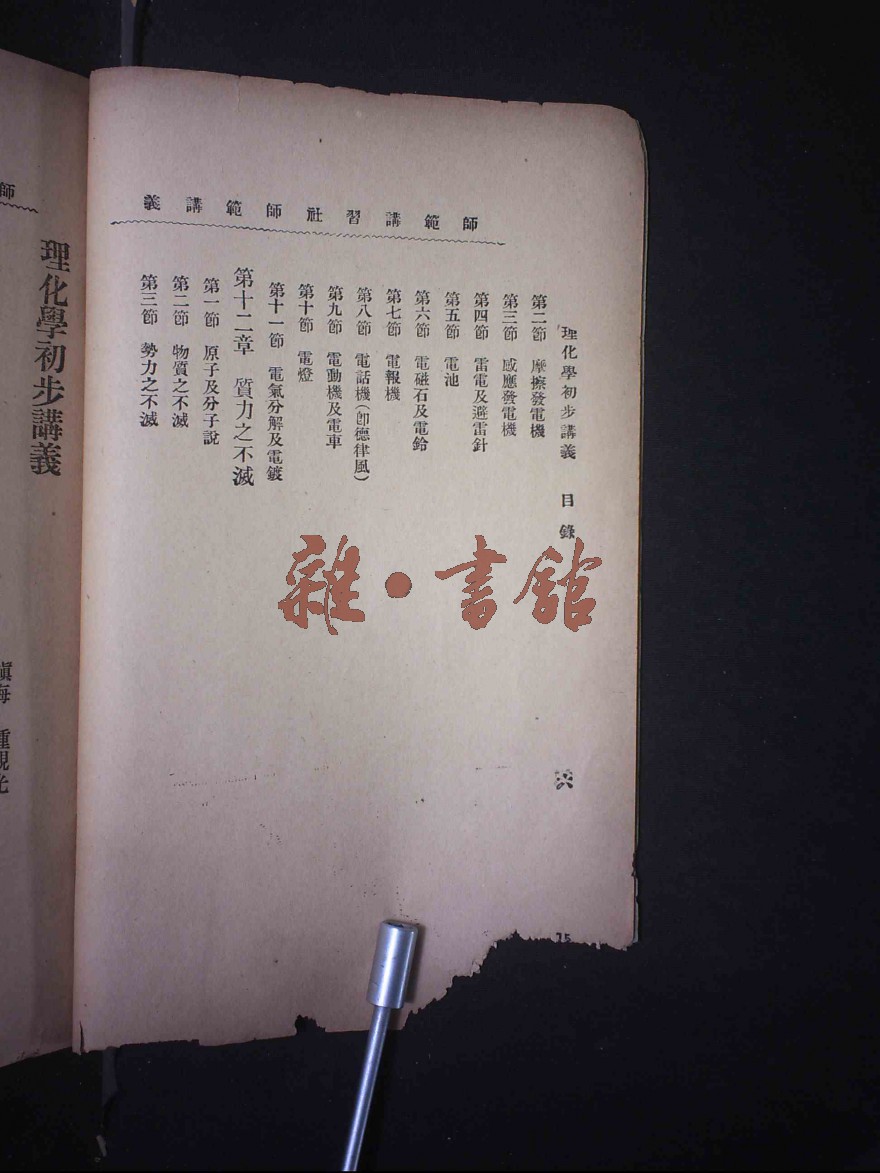 師範講習社師範講義
理化學初步講義 目錄
第二節 摩擦發電機
第三節 感應發電機
第四節 雷電及避雷針
第五節 電池
第六節 電磁石及電鈴
第七節 電報機
第八節 電話機(卽德律風)
第九節 電動機及電車
第十節 電燈
第十一節 電氣分解及電鍍
第十二章 質力之不滅
第一節 原子及分子說
第二節 物質之不滅
第三節 勢力之不滅
六
15
雜·書館
師
理化學初步講義
鎮海 鍾觀光